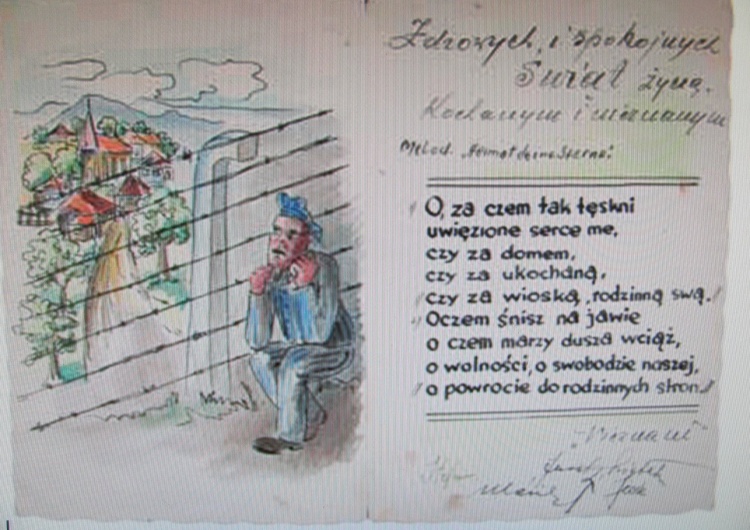 Zdrowych, i spokojnych
Świąt życzą.
Kochanym i nieznanym
Melod. "Heimat deine Sterne"
O, za czem tak tęskni
uwięzione serce me,
czy za domem,
czy za ukochaną,
czy za wioską, rodzinną swą.
O czem śnisz na jawie
o czem marzy dusza wciąż,
o wolności, o swobodzie naszej,
o powrocie do rodzinnych stron.